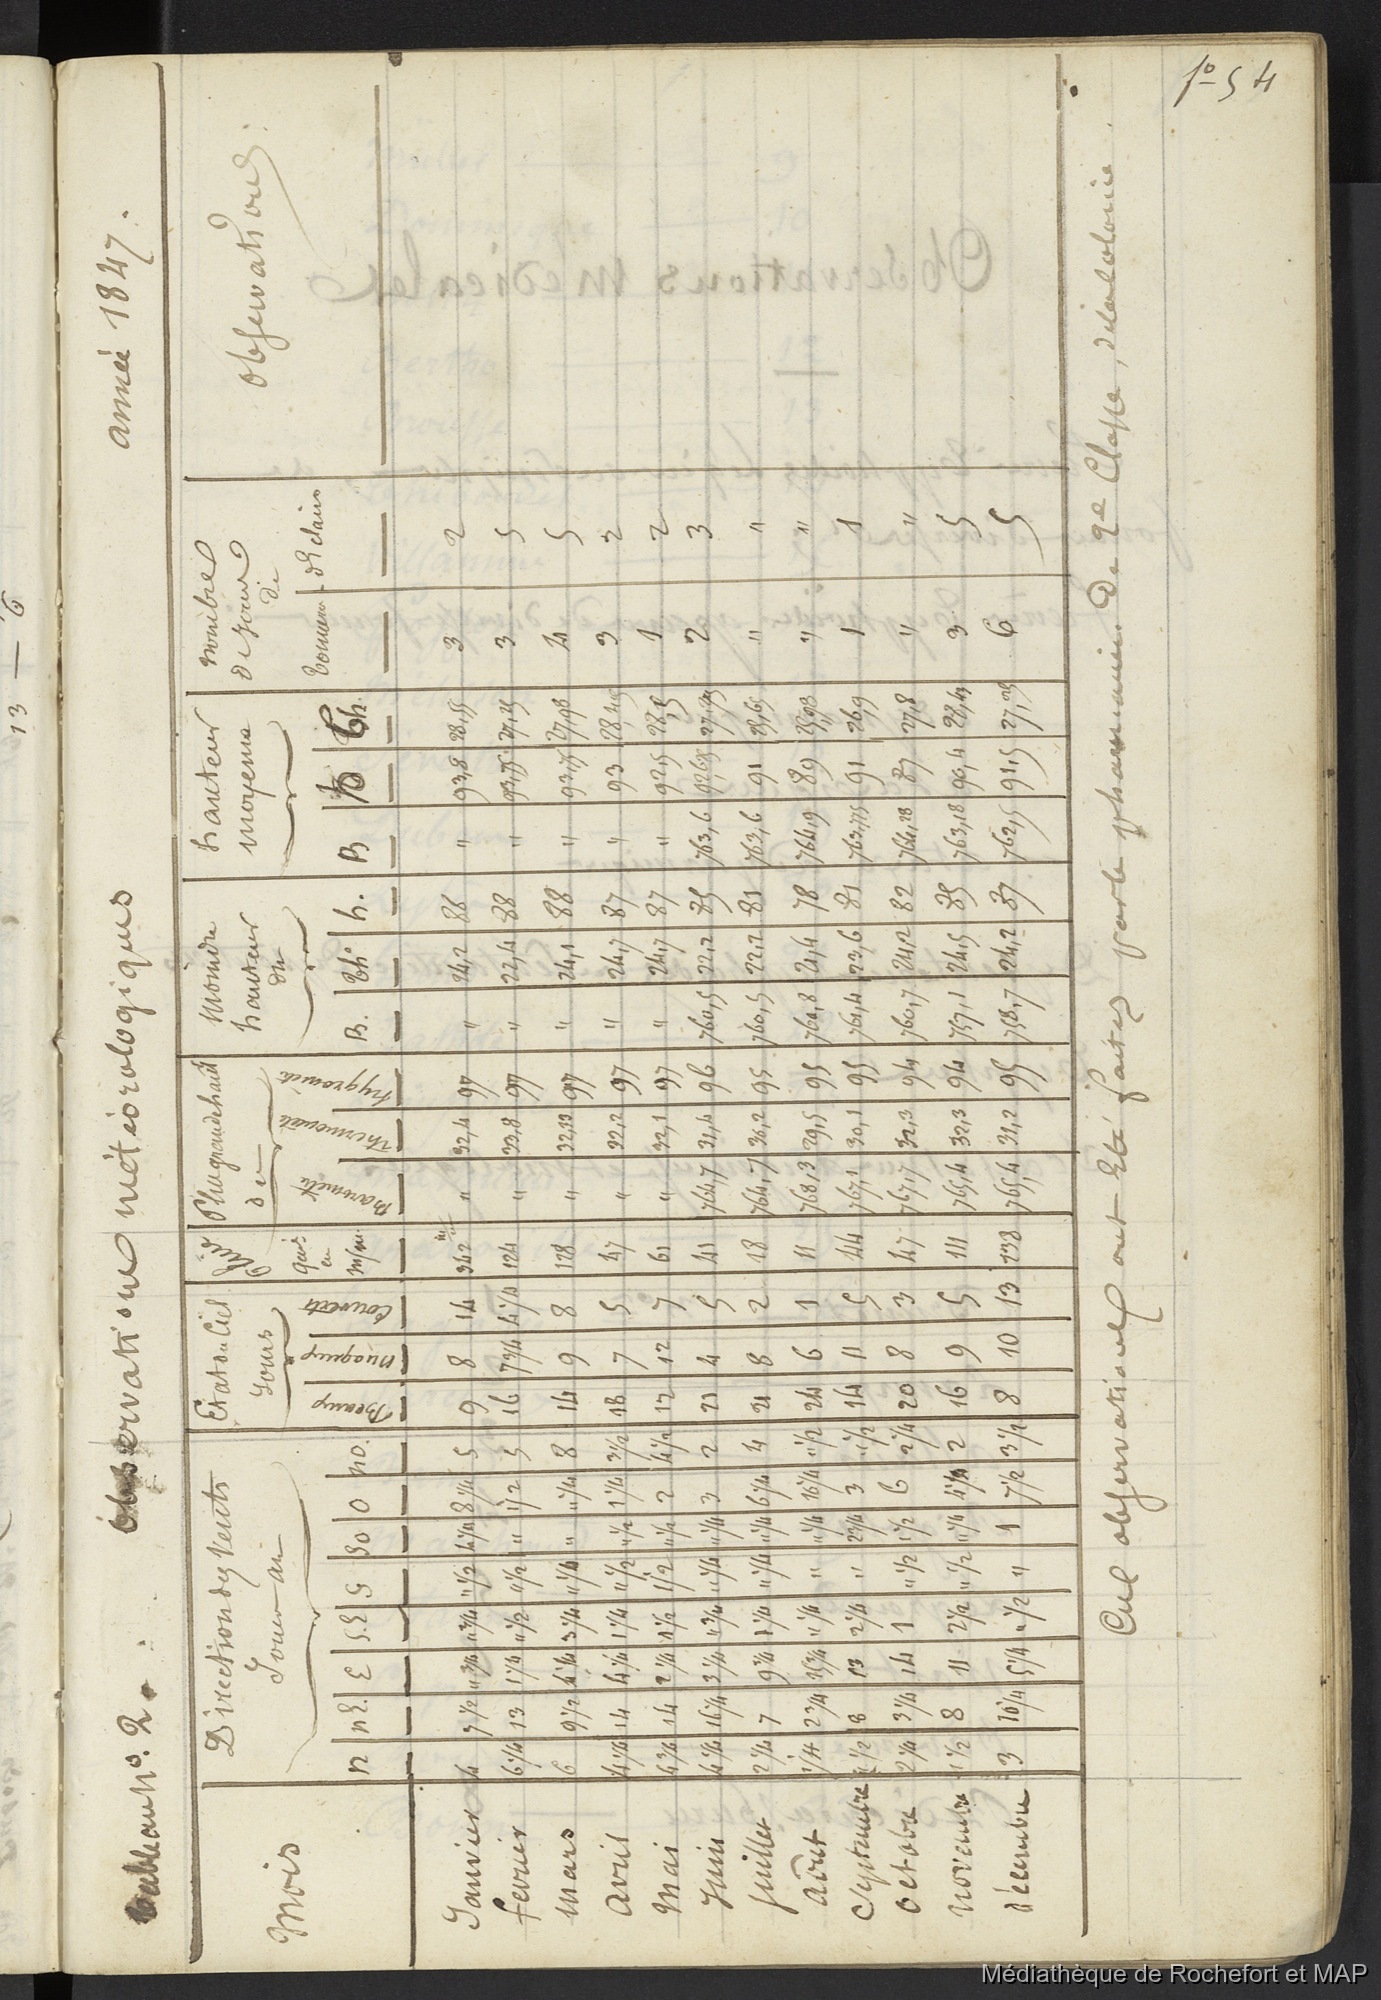 fo 54
Tableau No. 2. Observations météorologiques année 1847.
Mois Direction des Vents Etat du Ciel Pluie Plus grande haut. Moindre hauteur nombre Observations
Jour au Jours de hauteur moyenne de jours
du de
n nE. E S.E S SO O no. Beaux nuageux Couverts m/m. Baromètre thermomèt hygromèt B. th° h. B h th. Tonnerre d'Eclairs
Janvier 4 7 1/2 " 3/4 " 3/4 " 1/2 4 1/4 8 1/4 5 9 8 14 342 " 32,4 97 " 24,2 86 " 93,8 28,55 3 2
fevrier 6 1/4 13 1 1/4 " 1/2 " 1/2 " " 1/2 5 16 7 3/4 4 1/4 124 " 32,8 97 " 22,4 88 " 93,75 27,25 3 5
Mars 6 9 1/2 4 1/4 3 1/4 " 1/4 " " 1/4 8 14 9 8 128 " 32,13 97 " 24,1 88 " 93,75 27,98 4 5
avril 4 1/4 14 4 1/4 1 1/4 " 1/2 " 1/2 1 1/4 3 1/2 18 7 5 47 " 32,2 97 " 24,7 87 " 93 28,45 3 2
Mai 4 3/4 14 2 1/4 1 1/2 1/2 " 1/2 2 4 1/2 12 12 7 61 " 32,1 97 " 24,7 87 " 92,5 28,5 1 2
Juin 4 1/4 16 1/4 3 1/4 " 3/4 " 1/4 " 1/4 3 2 21 4 5 41 764,7 31,4 96 760,5 22,2 85 763,6 92,65 27,95 2 3
Juillet 2 1/4 7 9 3/4 1 1/4 " 1/4 " 1/4 6 1/4 4 21 8 2 18 764,7 36,2 95 760,5 22,2 81 763,6 91 28,65 " "
août 1/4 2 3/4 " 1/4 " " 1/4 16 1/4 " 1/2 24 6 1 11 768,3 29,5 95 760,8 21,4 78 764,9 89 25,93 " "
Septembre " 1/2 8 13 2 1/4 " 2 3/4 3 " 1/2 14 11 5 44 767,1 30,1 95 761,4 23,6 81 763,75 91 26,9 1 1
octobre 2 1/4 3 1/4 14 1 " 1/2 " 1/2 6 2 1/4 20 8 3 47 767,17 32,3 94 760,7 24,2 82 764,28 87 27,8 " "
Novembre " 1/2 8 11 2 1/2 " 1/2 " 1/4 4 1/4 2 16 9 5 111 765,4 32,3 94 757,1 24,5 85 763,18 90,4 28,43 3 5
décembre 3 10 1/4 5 1/4 " 1/2 " 1 7 1/2 3 1/2 8 10 13 238 765,4 31,2 95 758,7 24,2 87 762,5 91,5 27,35 6 5
Ces observations ont Eté faites par le pharmacien De 2e Classe, de la Colonie.
13 — 6
Médiathèque de Rochefort et MAP